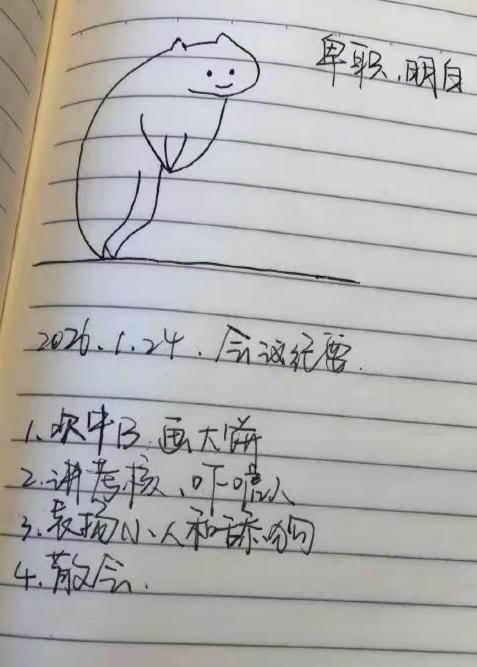 卑职，明白
2026.1.24.会议纪要.
1.吹牛B.画大饼
2.讲考核、吓唬人
3.表扬小人和舔狗
4.散会.